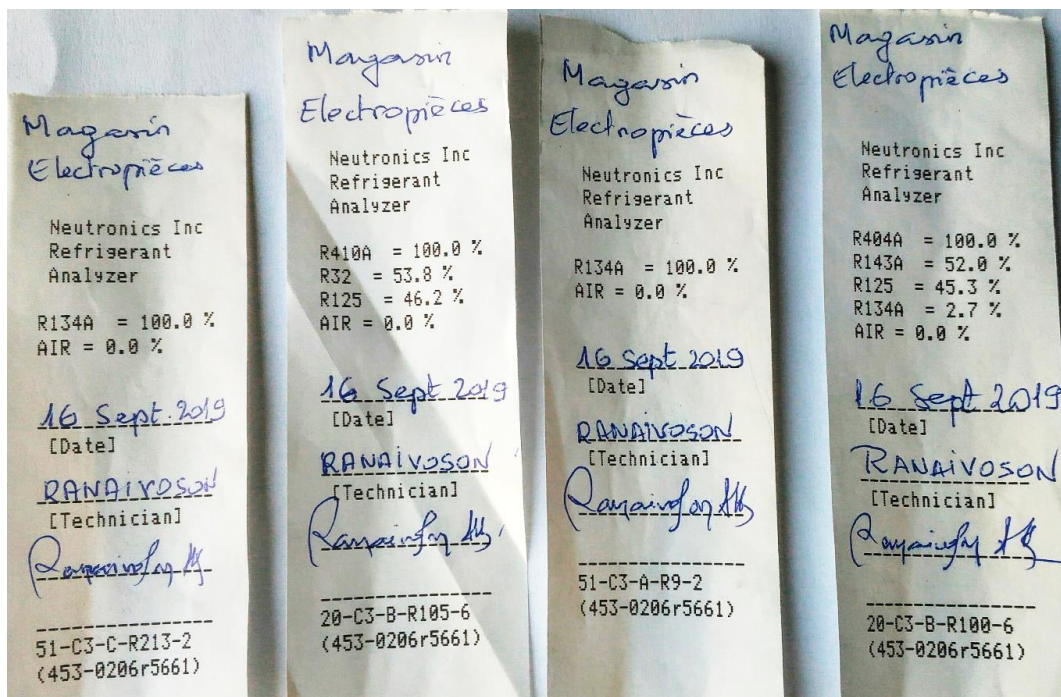 Magasin
Electropièces
Neutronics Inc
Refrigerant
Analyzer
R134A = 100.0 %
AIR = 0.0 %
16 Sept. 2019
[Date]
RANAIVOSON
[Technician]
51-C3-C-R213-2
(453-0206r5661)
Magasin
Electropièces
Neutronics Inc
Refrigerant
Analyzer
R410A = 100.0 %
R32 = 53.8 %
R125 = 46.2 %
AIR = 0.0 %
16 Sept 2019
[Date]
RANAIVOSON
[Technician]
20-C3-B-R105-6
(453-0206r5661)
Magasin
Electropièces
Neutronics Inc
Refrigerant
Analyzer
R134A = 100.0 %
AIR = 0.0 %
16 Sept 2019
[Date]
RANAIVOSON
[Technician]
51-C3-A-R9-2
(453-0206r5661)
Magasin
Electropièces
Neutronics Inc
Refrigerant
Analyzer
R404A = 100.0 %
R143A = 52.0 %
R125 = 45.3 %
R134A = 2.7 %
AIR = 0.0 %
16 Sept 2019
[Date]
RANAIVOSON
[Technician]
20-C3-B-R100-6
(453-0206r5661)